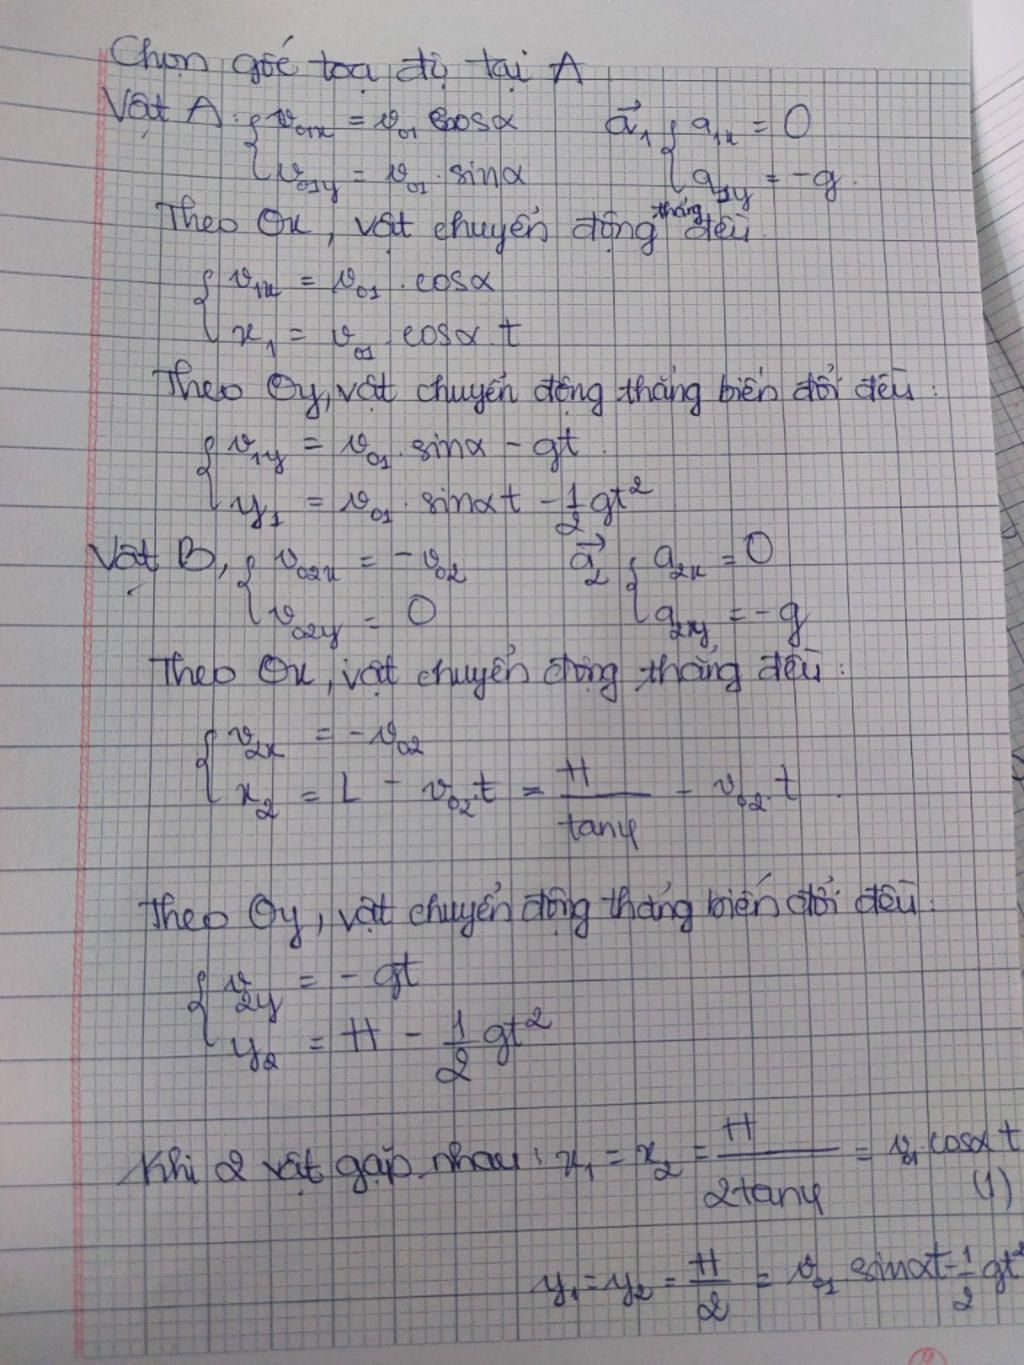 Chọn gốc toạ độ tại A
Vật A: { v₀₁ₓ = v₀₁ cosα    a⃗₁ { a₁ₓ = 0
{ v₀₁y = v₀₁ . sinα    { a₁y = -g.
Theo Ox, vật chuyển động thẳng đều
{ v₁ₓ = v₀₁ . cosα
{ x₁ = v₀₁ cosα. t
Theo Oy, vật chuyển động thẳng biến đổi đều:
{ v₁y = v₀₁. sinα - gt.
{ y₁ = v₀₁. sinαt - 1/2 gt²
Vật B, { v₀₂ₓ = -v₀₂    a⃗₂ { a₂ₓ = 0
{ v₀₂y = 0    { a₂y = -g
Theo Ox, vật chuyển động thẳng đều:
{ v₂ₓ = -v₀₂
{ x₂ = L - v₀₂.t = H/tanφ - v₀₂. t.
Theo Oy, vật chuyển động thẳng biến đổi đều:
{ v₂y = - gt
{ y₂ = H - 1/2 gt²
Khi 2 vật gặp nhau: x₁ = x₂ = H/2tanφ = v₁.cosαt (1)
y₁ = y₂ = H/2 = v₀₁ sinαt - 1/2 gt²